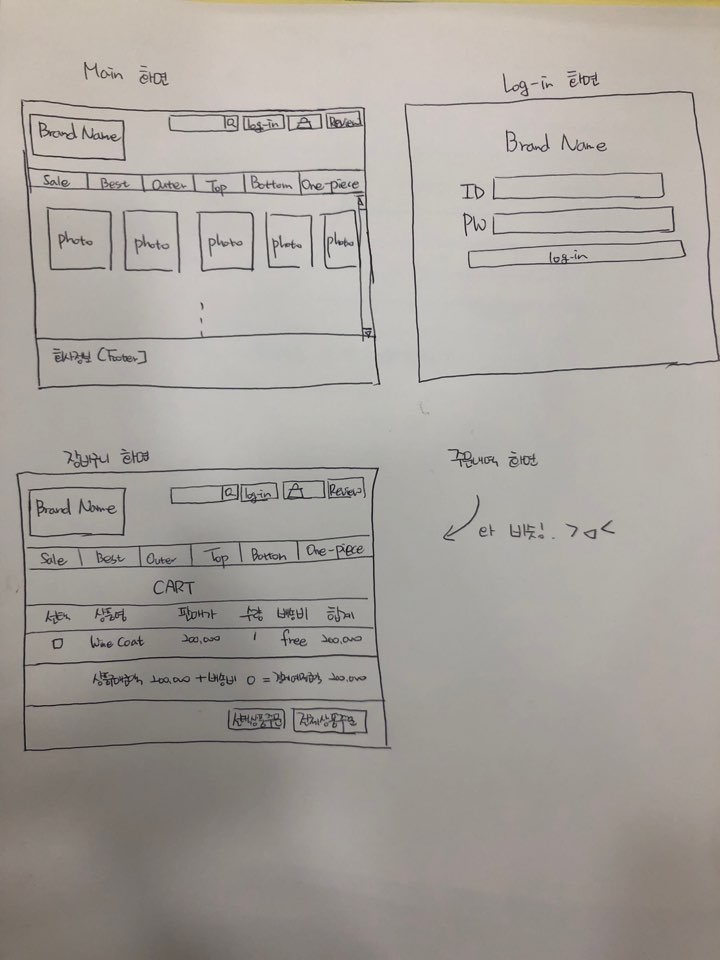 Main 화면
Brand Name
log-in
Review
Sale Best Outer Top Bottom One-piece
photo photo photo photo photo
회사정보 (Footer)
Log-in 화면
Brand Name
ID
PW
log-in
장바구니 화면
Brand Name
log-in
Review
Sale Best Outer Top Bottom One-piece
CART
선택 상품명 판매가 수량 배송비 합계
Coat 200,000 1 free 200,000
상품구매금액 200,000 + 배송비 0 = 결제예정금액 200,000
선택상품주문 전체상품주문
주문내역 화면
랑 비슷!. >ㅁ<